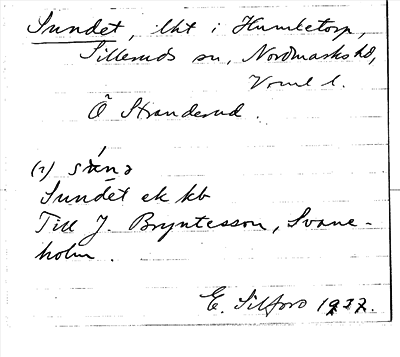 Sundet, lht i Humletorp,
Silleruds sn, Nordmarks hd,
Vrml l.
Ö Stranderud.
(1)
Sundet ek kb
Till J. Bryntesson, Svane-
holm.
E. Silfors 1937.